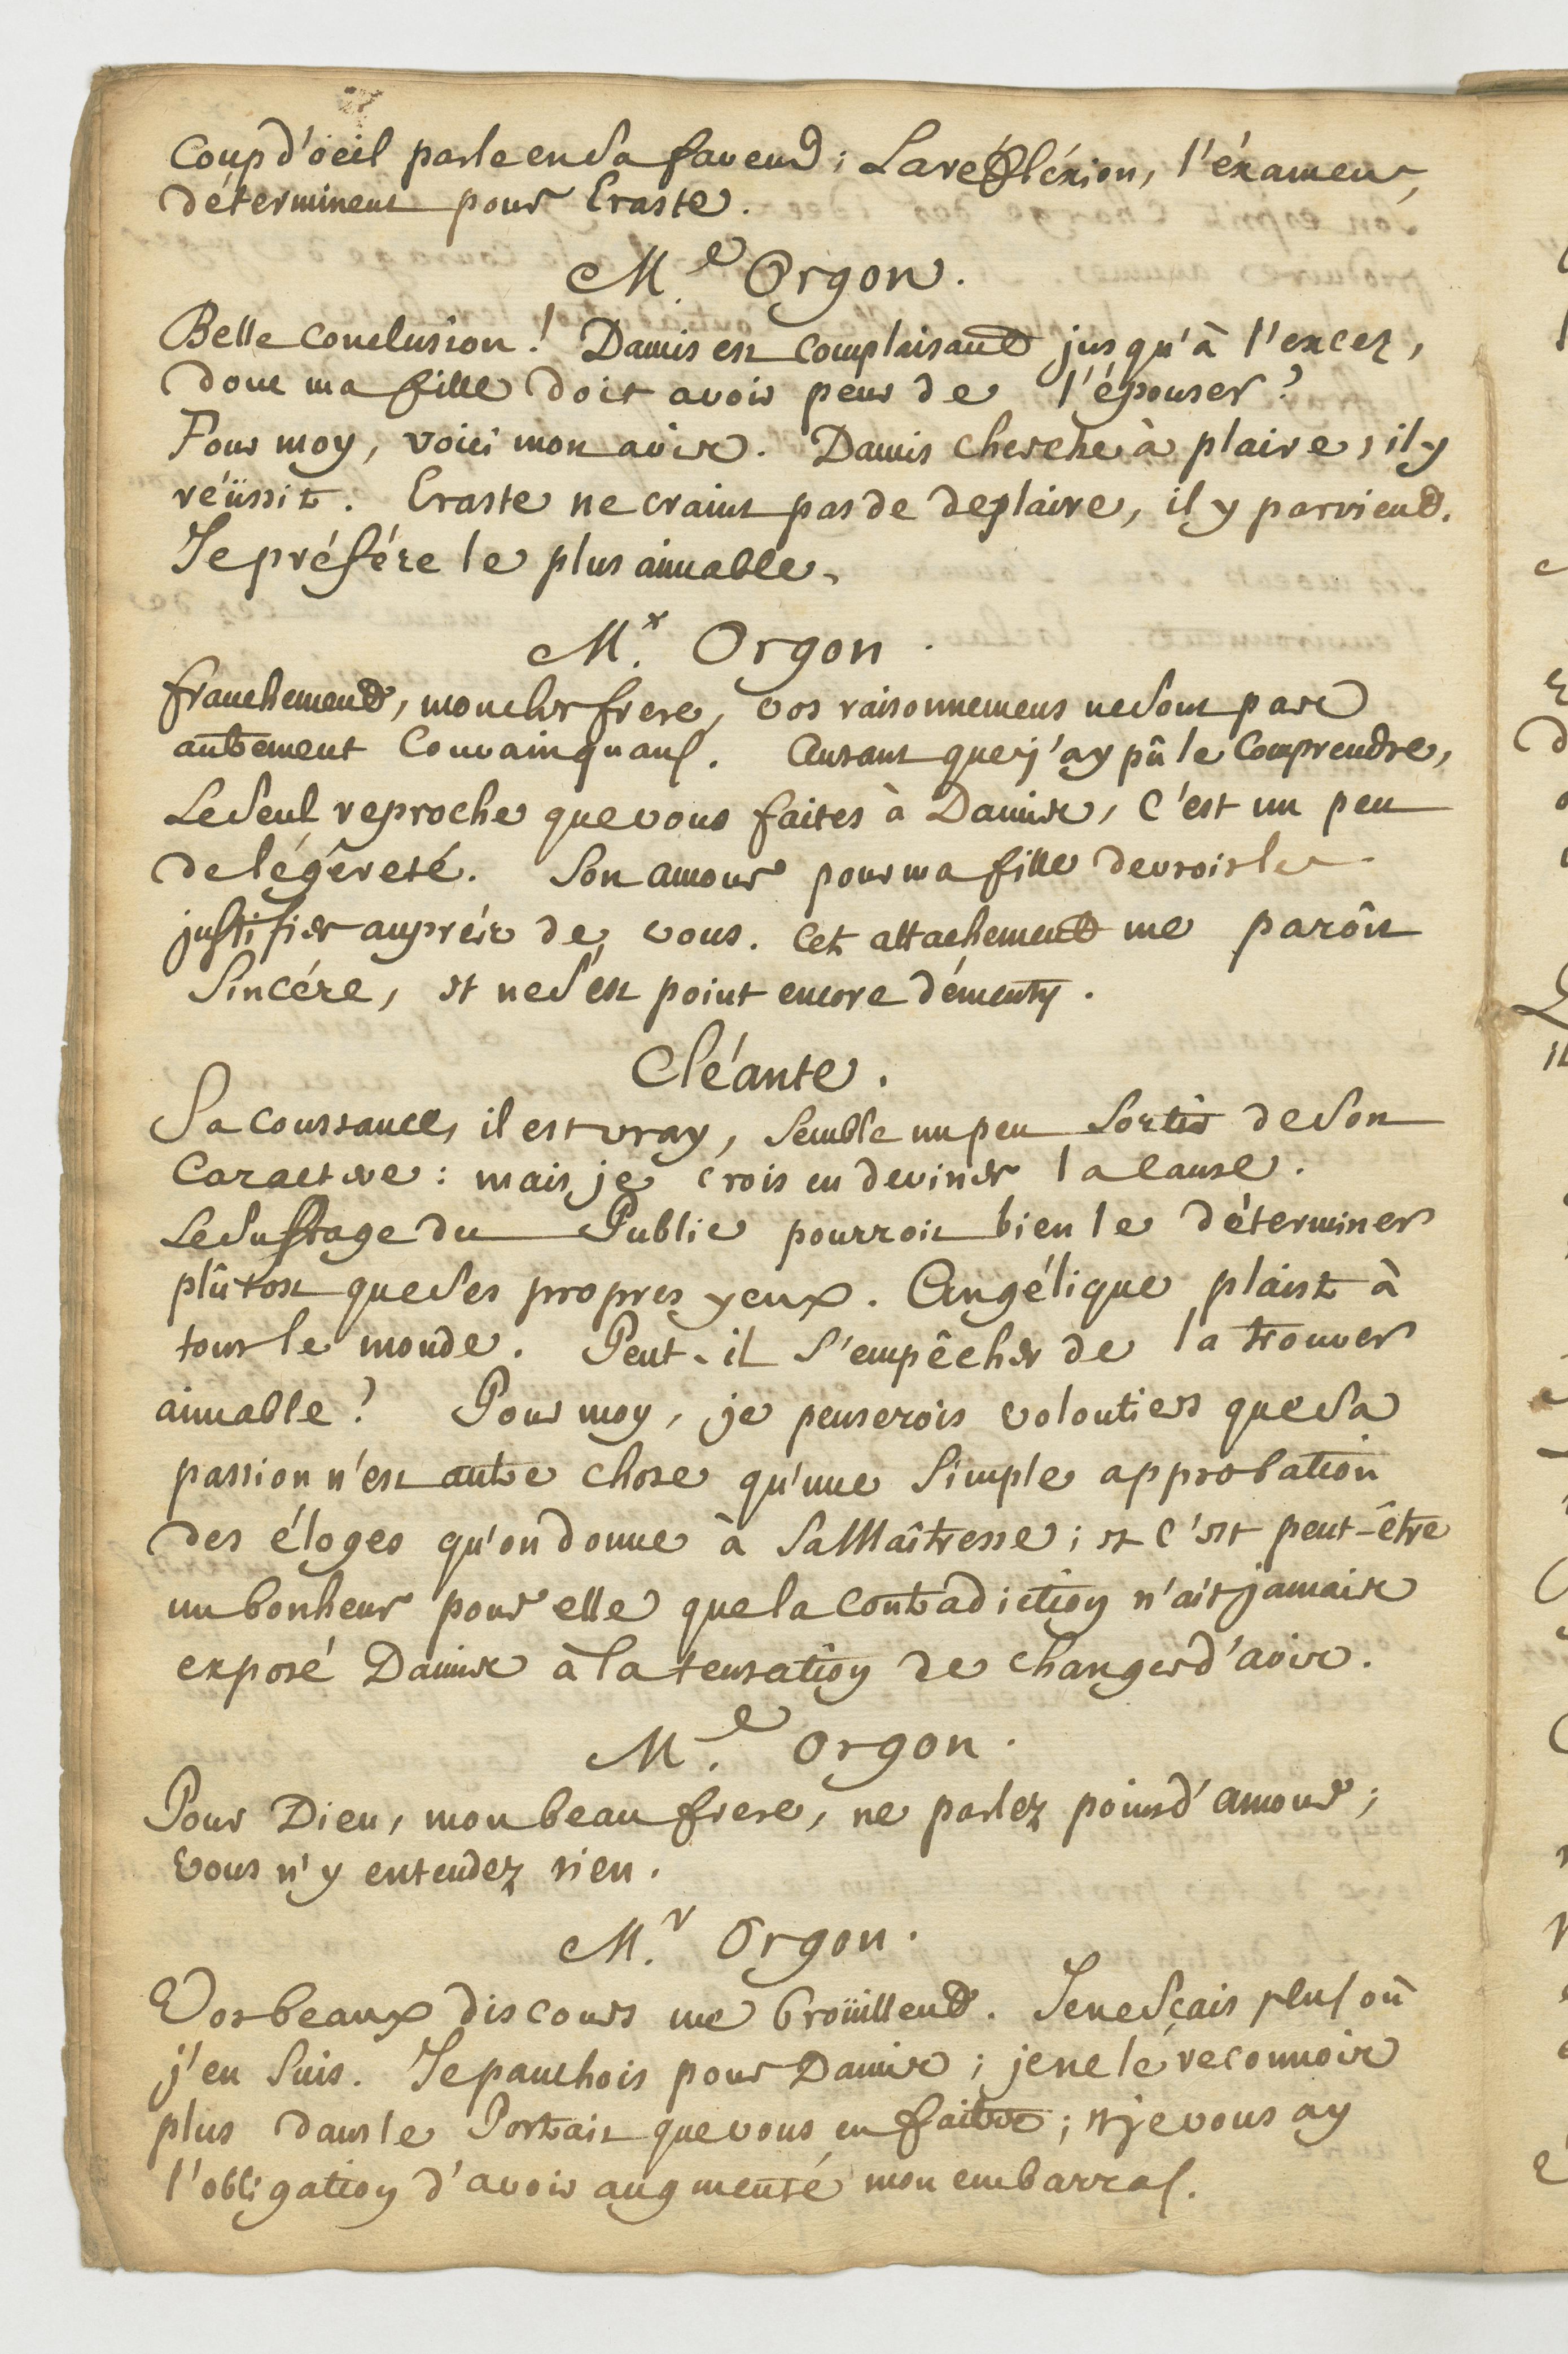 Coup d'oeil parle en sa faveur ; La réfléxion, l'éxamen,
déterminent pour Eraste.
M.e Orgon.
Belle conclusion ! Damis est complaisant jusqu'à l'excez,
donc ma fille doit avoir peur de l'épouser ?
Pour moy, voici mon avis. Damis cherche à plaire, il y
réüssit. Eraste ne craint pas de deplaire, il y parvient.
Je préfére le plus aimable.
M.r Orgon.
franchement, mon cher frere, vos raisonnemens ne sont pas
autrement Convainquans. Autant que j'ay pû le Comprendre,
Le seul reproche que vous faites à Damis, C'est un peu
de légéreté. Son amour pour ma fille devroit le
justifier auprés de vous. Cet attachement me parôit
Sincére, et ne s'est point encore démenty.
Cléante.
Sa constance, il est vray, Semble un peu Sortir de Son
Caractere : mais je crois en deviner la cause.
Le Suffrage du Public pourroit bien le déterminer
plûtost que ses propres yeux. Angélique plaist à
tout le monde. Peut-il S'empêcher de la trouver
aimable ? Pour moy, je penserois volontiers que sa
passion n'est autre chose qu'une Simple approbation
des éloges qu'on donne à Sa Maîtresse ; et C'est peut-être
un bonheur pour elle que la contradiction n'ait jamais
exposé Damis à la tentation de changer d'avis.
M.e Orgon.
Pour Dieu, mon beau frere, ne parlez point d'amour ;
vous n'y entendez rien.
M.r Orgon.
Vos beaux discours me broüillent. Je ne sçais plus où
j'en Suis. Je panchois pour Damis ; je ne le reconnois
plus dans le Portrait que vous en faites ; et je vous ay
l'obligation d'avoir augmenté mon embarras.